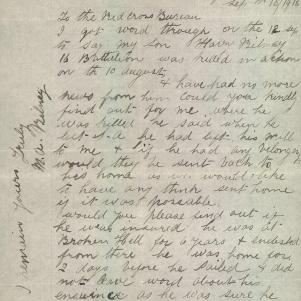 Sep 10/1916
To the Red Cross Bureau
I got word through on the 12 sep
to say my son Harn Pilrey
16 Battalion was killed in action
on th 10 august
& have had no more
news from him could you kindly
find out for me where he
was killed he said when he
left he had left his will
to me & if he had any belongen
would they be sent back to
his home as we would like
to have any think sent home
if it was posable
would you please find out if
he was insured he was at
Broken Hill for 6 years & enlested
from there he was home for
2 days before he sailed & did
not leave word about his
as he was sure he
I remain yours truly